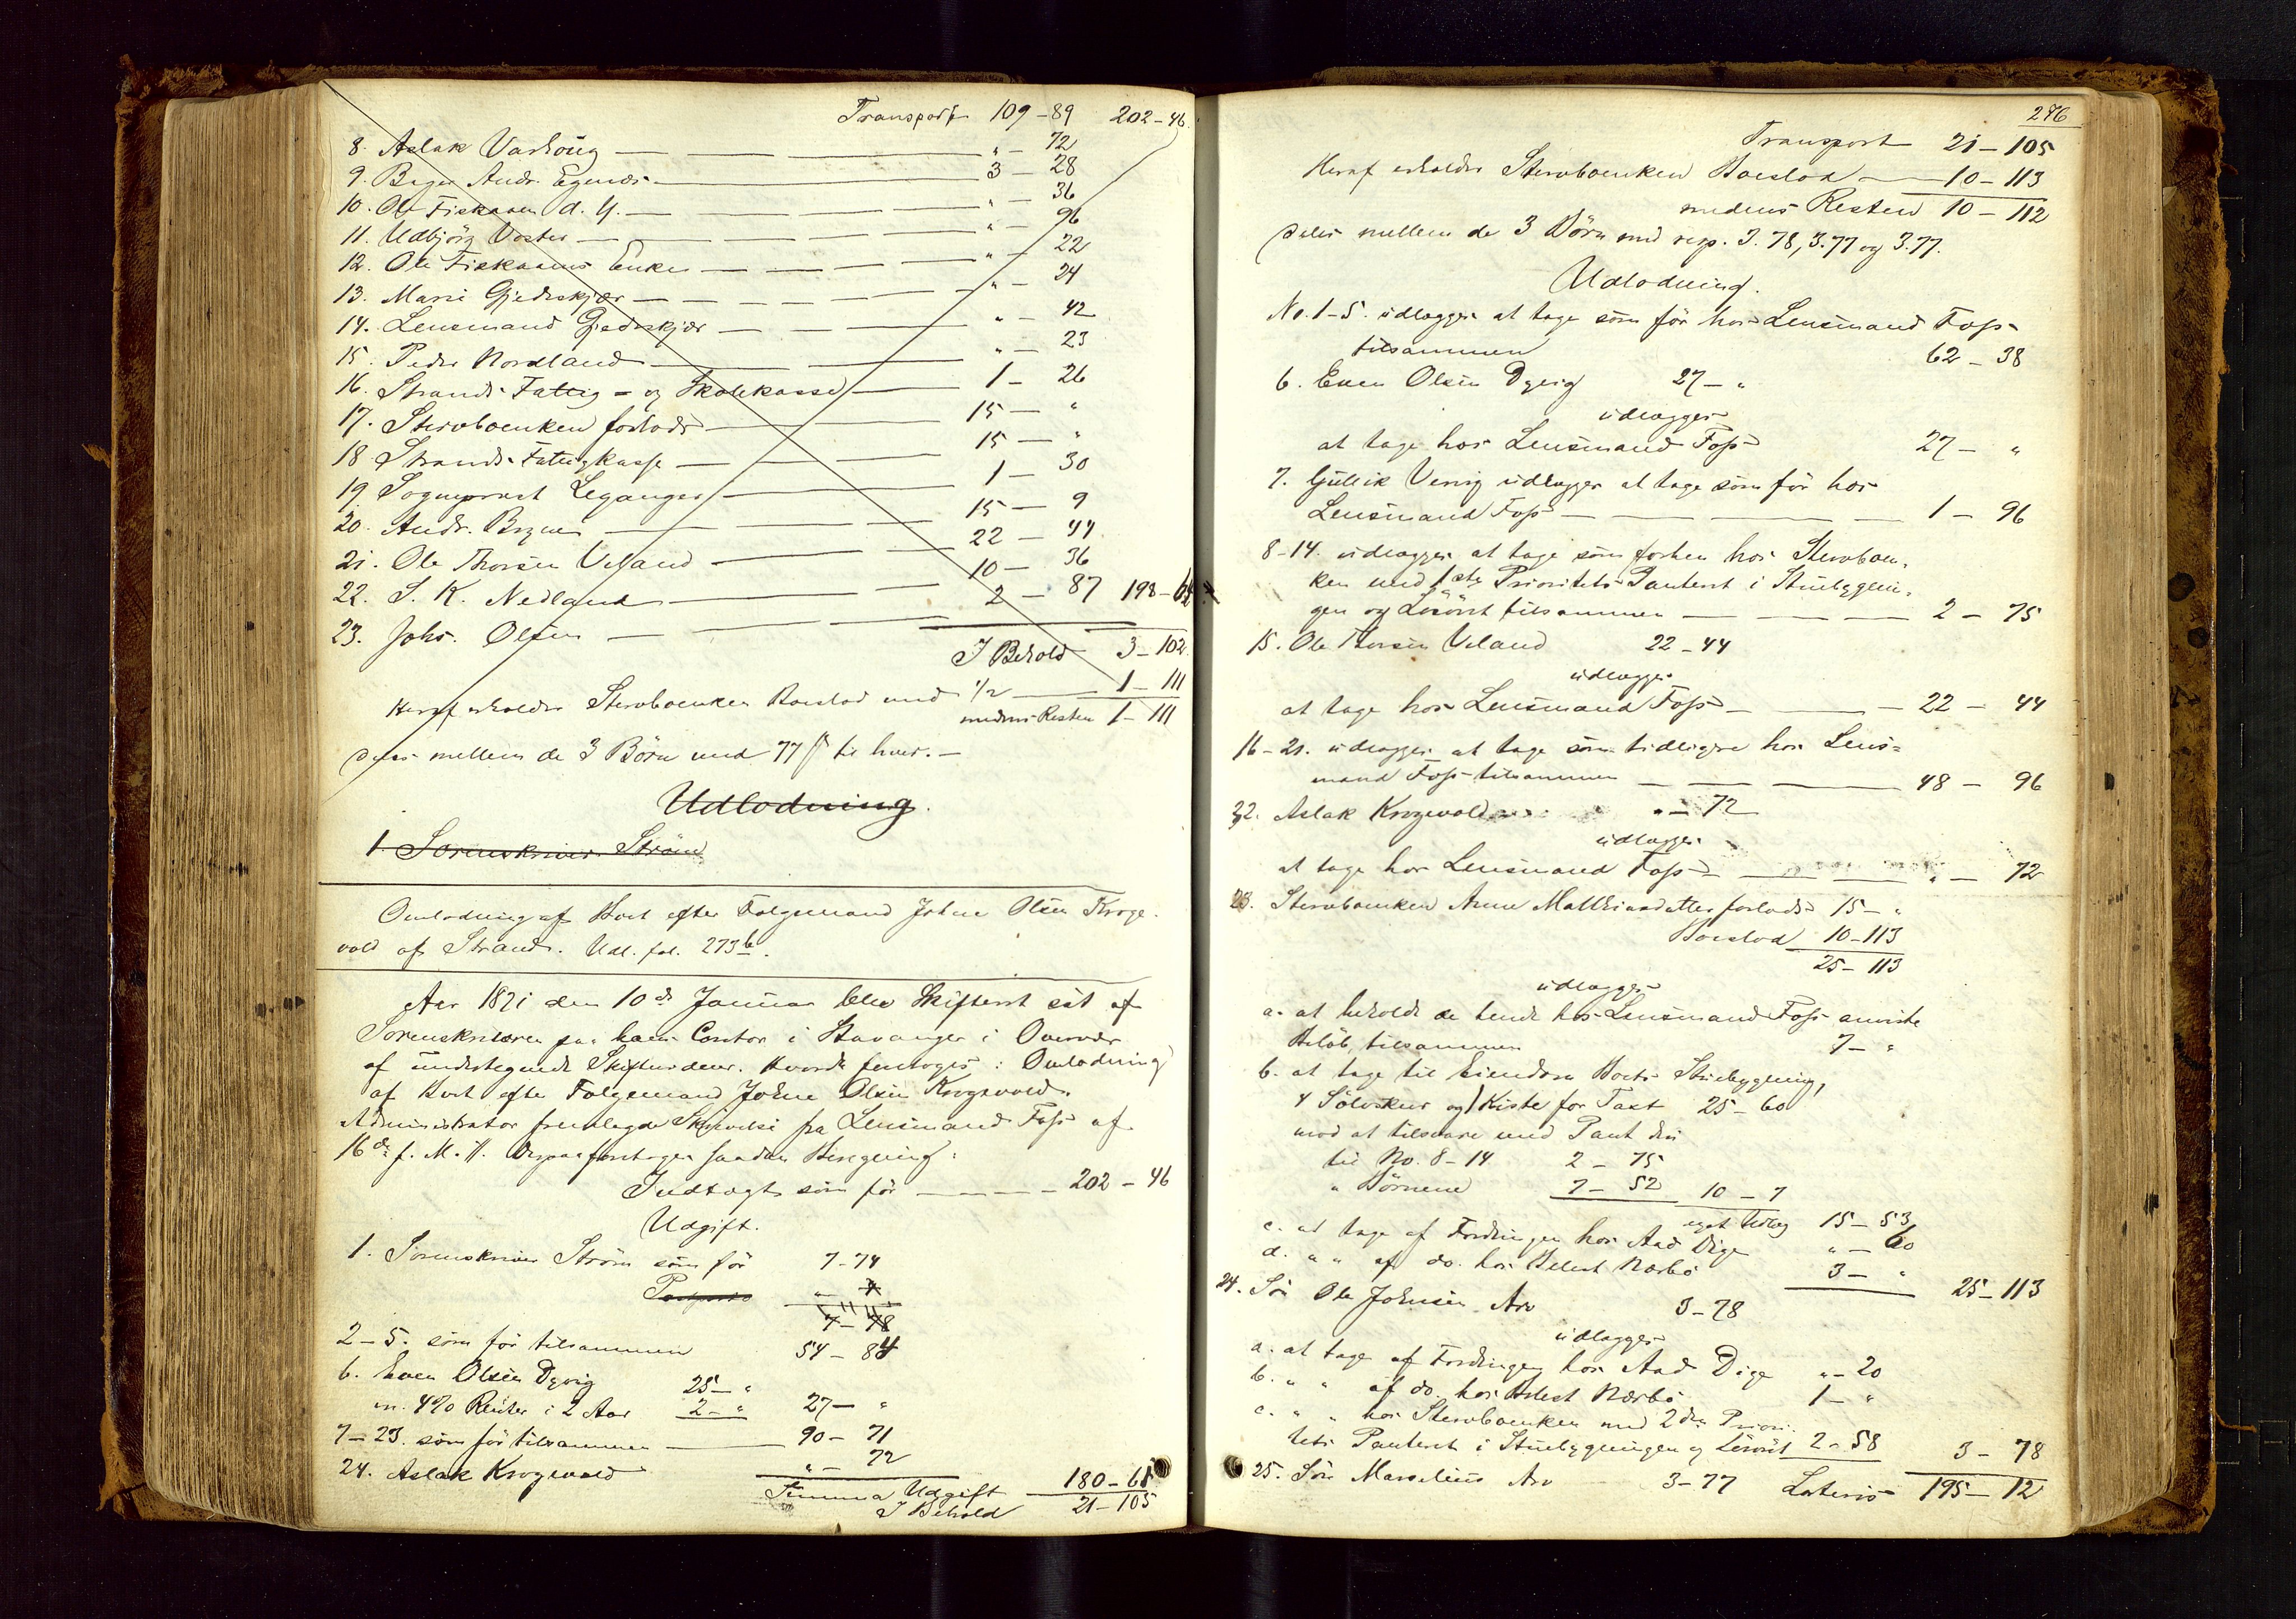 Transport 109 - 89 202 - 46.
8. Aslak Varhoug — " - 72
9. Bager Andr. Egenæs — 3 - 28
10. Ole Fiskaaen d. Y. — " - 36
11. Udbjörg Voster — " - 96
12. Ole Fiskaaens Enke — " - 22
13. Marie Gjedreskjær — " - 24
14. Lensmand Gjedreskjær — " - 42
15. Peder Nordland — " - 23
16. Strands Fattig- og Skolekasse — 1 - 26
17. Stervboenken forlods — 15 - "
18. Strands Fattigkasse — 15 - "
19. Sogneprest Leganger — 1 - 30
20. Andr. Bryne — 15 - 9
21. Ole Thorsen Veland — 22 - 44
22. S. K. Nedland — 10 - 36
23. Johs. Olsen — 2 - 87 198 - 64
I Behold 3 - 102
Heraf erholder Stervboenken Boeslod med 1/2 — 1 - 111
medens Resten 1 - 111
deles mellem de 3 Börn med 77 ß til hver. —
Udlodning.
1. Sorenskriver Ström
Omlodning af Boet efter Folgemand Johne Olsen Kroge-
vold af Strand. Udl. fol. 273b.
Aar 1871 den 10de Januar blev Skifteret sat af
Sorenskriveren paa hans Contor i Stavanger i Overvær
af undertegnede Skiftevidner. Hvorda foretoges: Omlodning
af Boet efter Folgemand Johne Olsen Krogevold.
Administrator fremlagde Skrivelse fra Lensmand Foss af
16de f. M. Derpaa foretoges saadan Beregning:
Indtægt som för — 202 - 46
Udgift.
1. Sorenskriver Ström som för 7 - 74
Postporto " - 4
7 - 78
2 - 5. som för tilsammen 54 - 84
6. Even Olsen Dyvig 25 - "
m. 4% Renter i 2 Aar 2 - " 27 - "
7 - 23. som för tilsammen — 90 - 71
24. Aslak Krogevold " - 72
Summa Udgift 180 - 61
I Behold 21 - 105
276
Transport 21 - 105
Heraf erholder Stervboenken Boeslod — 10 - 113
medens Resten 10 - 112
deles mellem de 3 Börn med resp. 3.78, 3.77 og 3.77.
Udlodning.
No. 1 - 5. udlægges at tage som för hos Lensmand Foss
tilsammen 62 - 38
6. Even Olsen Dyvig 27 - "
udlægges
at tage hos Lensmand Foss 27 - "
7. Gullik Versig udlægges at tage som för hos
Lensmand Foss — 1 - 96
8 - 14. udlægges at tage som forhen hos Stervboen-
ken med 1ste Prioritets Panteret i Stuebygnin-
gen og Lösöret tilsammen — 2 - 75
15. Ole Thorsen Veland 22 - 44
udlægges
at tage hos Lensmand Foss — 22 - 44
16 - 21. udlægges at tage som tidligere hos Lens-
mand Foss tilsammen — 48 - 96
22. Aslak Krogevold " - 72
udlægges
at tage hos Lensmand Foss — " - 72
23. Stervboenken Anne Matthiasdatter forlods 15 - "
Boeslod 10 - 113
25 - 113
udlægges
a. at beholde de hende hos Lensmand Foss anviste
Belöb, tilsammen 7 - "
b. at tage til Eiendom Boets Stuebygning,
4 Sölvskeer og 1 Kiste for Taxt 25 - 60
mod at tilsvare med Pant deri
til No. 8 - 14 2 - 75
" Börnene 7 - 52 10 - 7
eget Udlæg 15 - 53
c. at tage af Fordringen hos Aad Dige " - 60
d. " " af do. hos Helest Nærbö 3 - " 25 - 113
24. Sön Ole Johnsen Arv 3 - 78
udlægges
a. at tage af Fordringen hos Aad Dige " - 20
b. " " af do. hos Helest Nærbö 1 - "
c. " " hos Stervboenken med 2den Priori-
tets Panteret i Stuebygningen og Lösöret 2 - 58 3 - 78
25. Sön Marselius Arv 3 - 77 Lateris 195 - 12